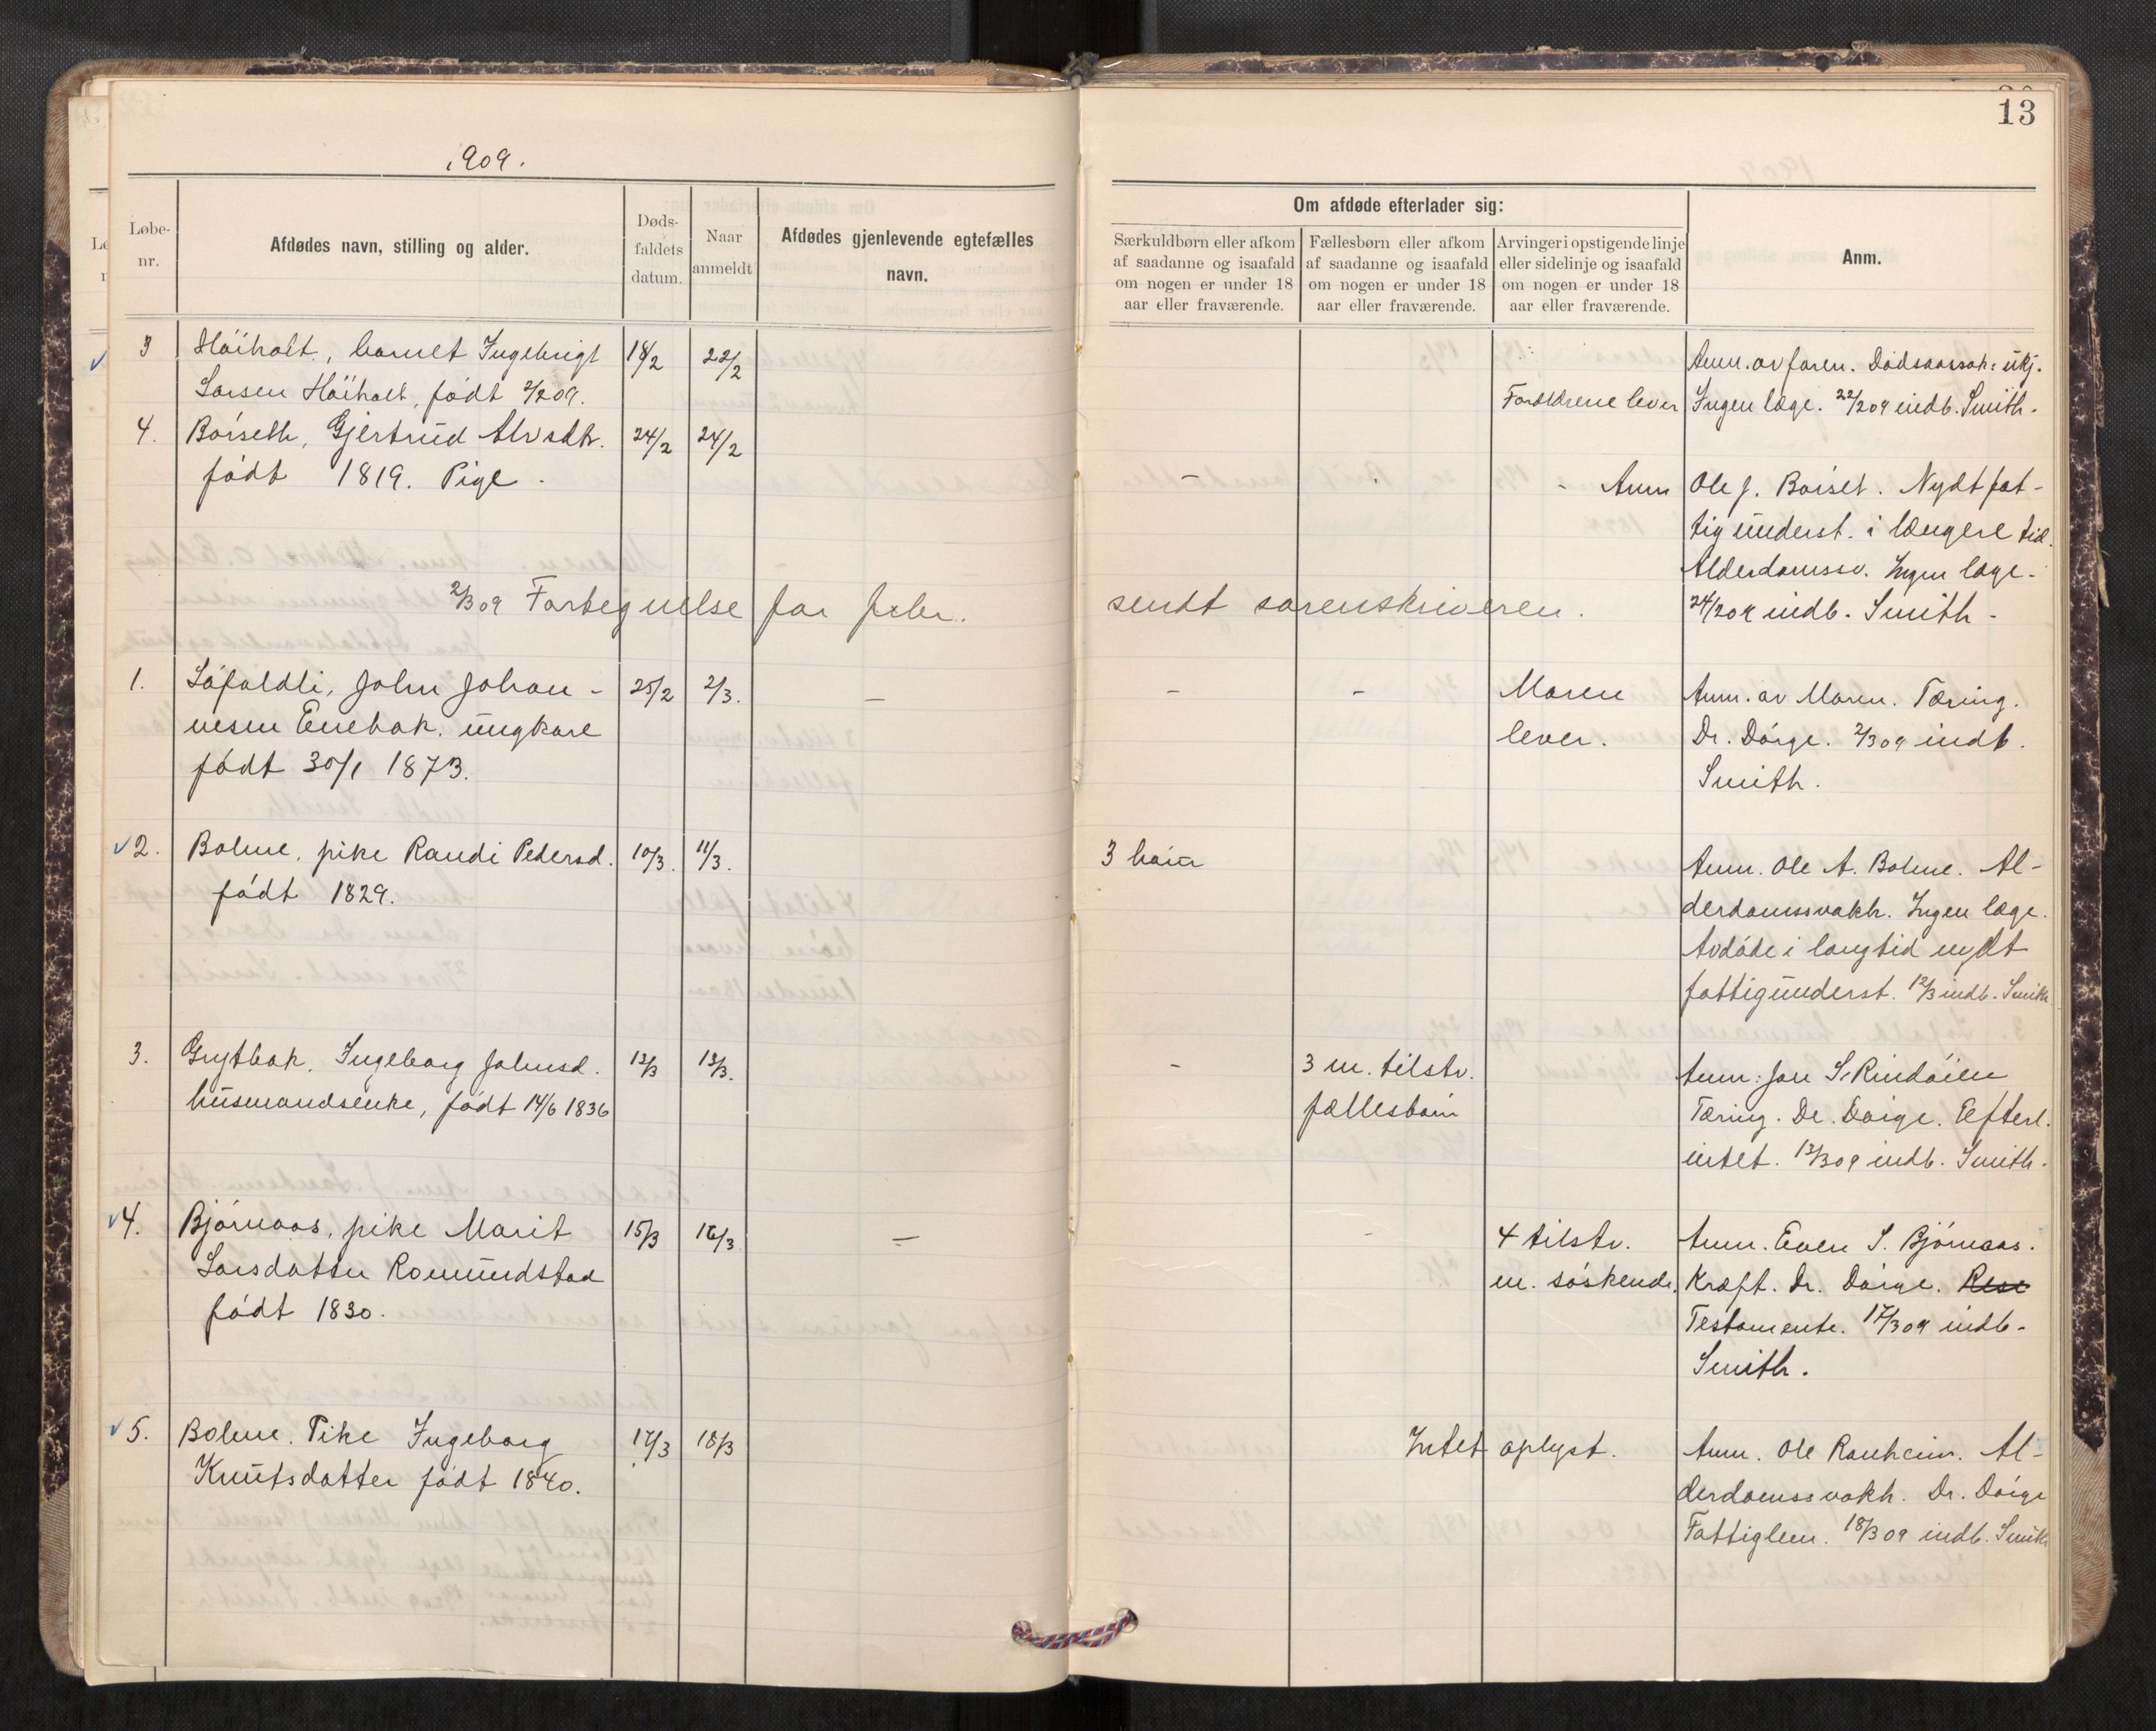 13
1909.
Løbe-
nr.
Afdødes navn, stilling og alder.
Døds-
faldets
datum.
Naar
anmeldt
Afdødes gjenlevende egtefælles
navn.
Om afdøde efterlader sig:
Særkuldbørn eller afkom
af saadanne og isaafald
om nogen er under 18
aar eller fraværende.
Fællesbørn eller afkom
af saadanne og isaafald
om nogen er under 18
aar eller fraværende.
Arvinger i opstigende linje
eller sidelinje og isaafald
om nogen er under 18
aar eller fraværende.
Anm.
3 Höiholt, barnet Ingebrigt 18/2 22/2 Anm. av faren. Dødsaarsak: ukj.
Larsen Höiholt, født 2/2 09. Forældrene lever Ingen læge. 22/2 09 indb. Smith.
4. Børseth, Gjertrud Alvsdtr. 24/2 24/2
født 1819. Pige. - - Anm Ole J. Børset. Nydt fat-
tigunderst. i længere tid.
Alderdomssv. Ingen læge.
2/3 09 Fortegnelse for febr. sendt sorenskriveren. 24/2 09 indb. Smith.
1. Løfaldli, John Johan- 25/2 2/3. - - - Moren Anm. av Moren. Tæring.
nesen Enebak. ungkare lever. Dr. Dörge. 2/3 09 indb.
født 30/1 1873. Smith.
2. Bolme, pike Randi Pedersd. 10/3. 11/3. 3 børn Anm. Ole A. Bolme. Al-
født 1829. derdomssvakh. Ingen læge.
Avdøde i lang tid nydt
fattigunderst. 12/3 indb. Smith
3. Grytbak, Ingeborg Johnsd. 12/3 13/3. - 3 m. tilstv. Anm: Jon S. Rindöien
husmandsenke, født 14/6 1836 fællesbørn Tæring. Dr. Dörge. Efterl.
intet. 13/3 09 indb. Smith.
4. Bjørnaas, pike Marit 15/3 16/3 - - 4 tilstv. Anm. Even S. Bjørnaas.
Larsdatter Romundstad m. søskende. Kræft. Dr. Dörge. Rese
født 1830. Testamente. 17/3 09 indb.
Smith.
5. Bolme. Pike Ingeborg 17/3 18/3 Intet oplyst. Anm. Ole Ranheim. Al-
Knutsdatter født 1840. derdomssvakh. Dr. Dörge
Fattiglem. 18/3 09 indb. Smith